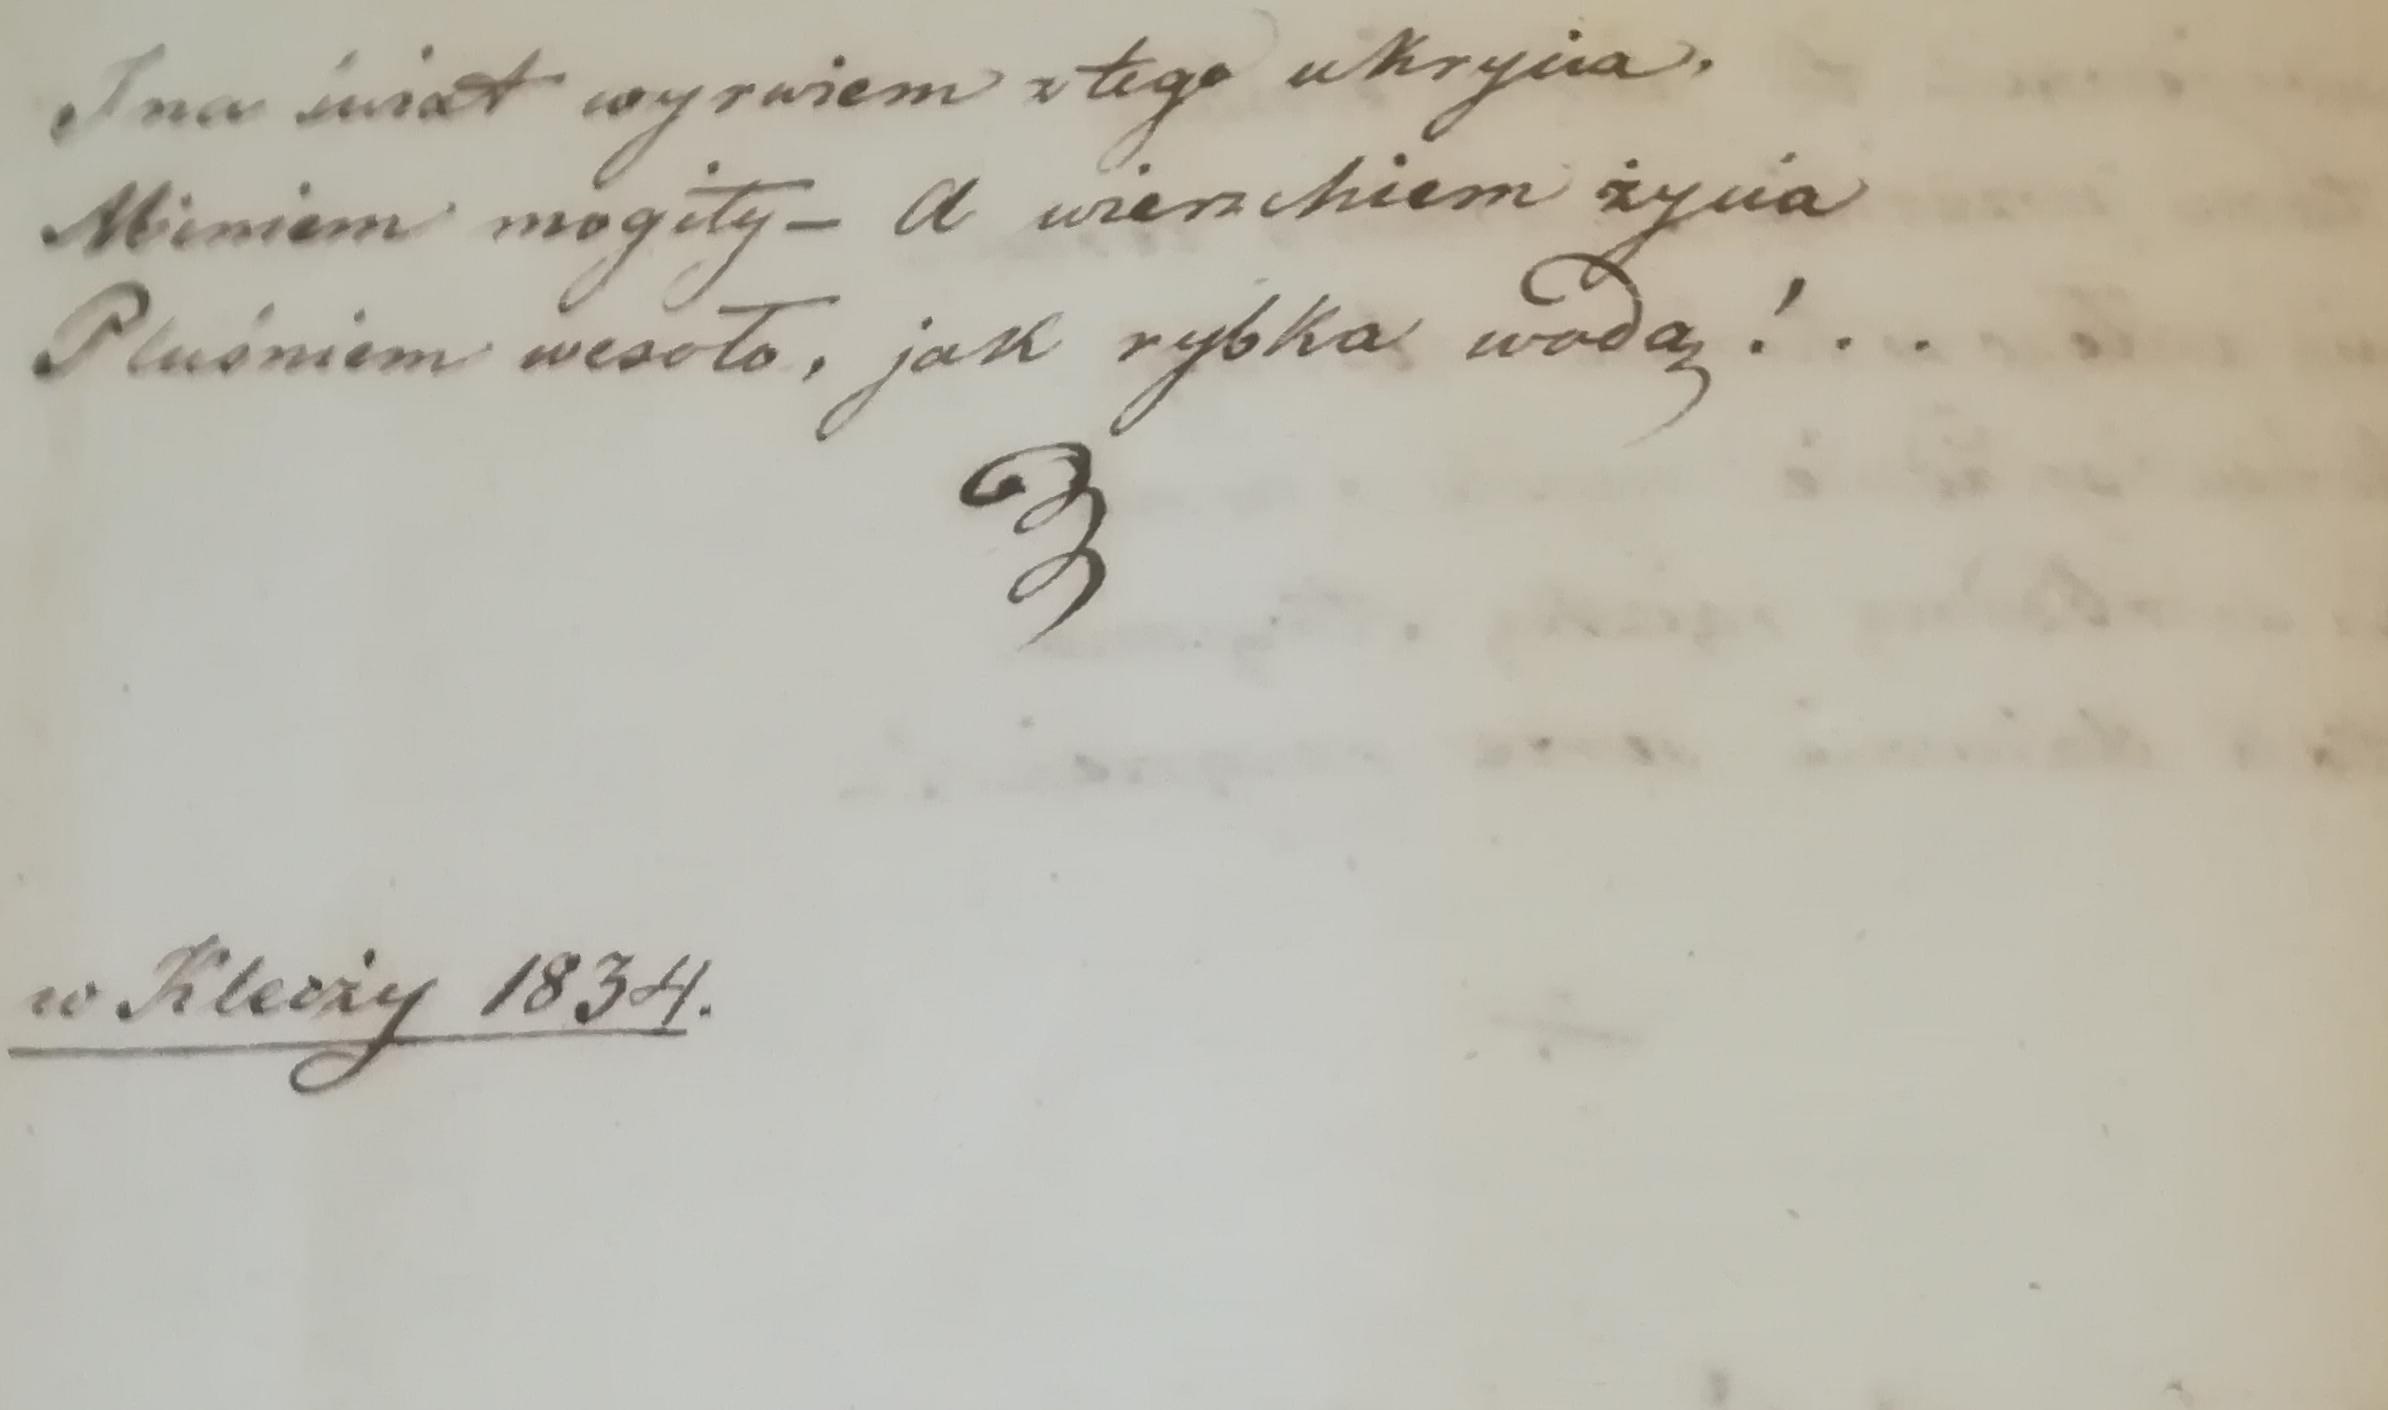 I na świat wyrwiem z tego ukrycia,
Miniem mogiły – A wierzchiem życia
Pluśniem wesoło, jak rybka wodą!...
w Kleczy 1834.